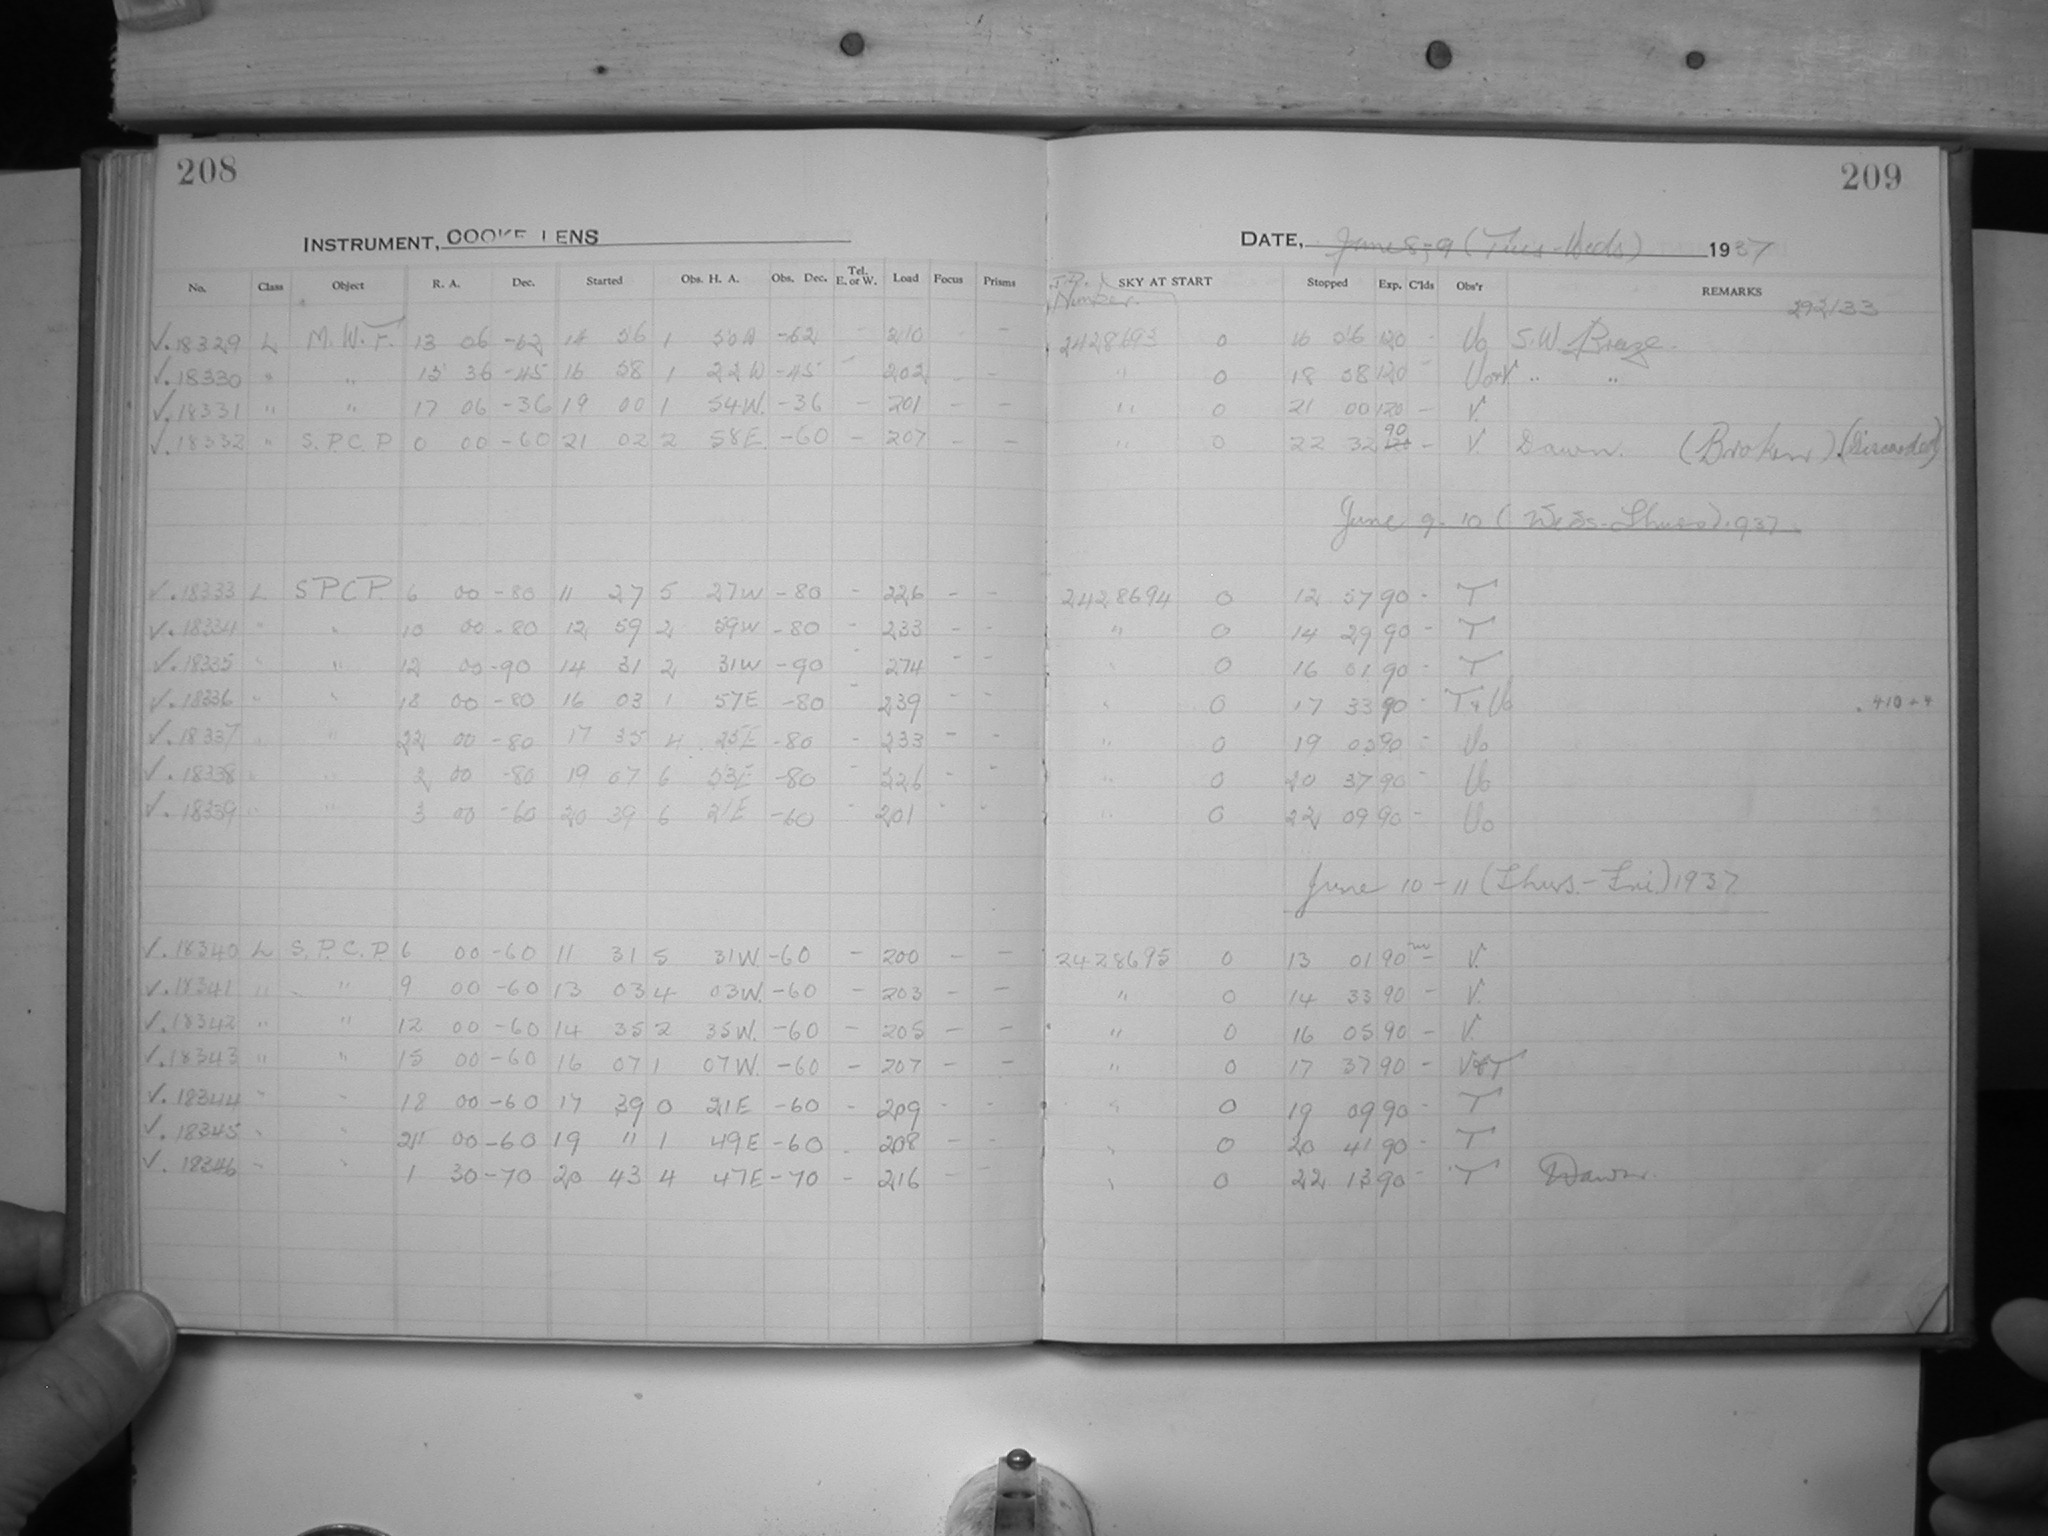 208
INSTRUMENT, COOKE LENS
No. Class Object R. A. Dec. Started Obs. H. A. Obs. Dec. Tel. E. or W. Load Focus Prisms
✓.18329 L M.W.F. 13 06 -62 14 56 1 50W -62 - 210 - -
✓.18330 " " 15 36 -45 16 58 1 22W -45 - 202 - -
✓.18331 " " 17 06 -36 19 00 1 54W. -36 - 201 - -
✓.18332 " S.P.C.P. 0 00 -60 21 02 2 58E. -60 - 207 - -
✓.18333 L SPCP. 6 00 -80 11 27 5 27W -80 - 226 - -
✓.18334 " " 10 00 -80 12 59 2 59W -80 - 233 - -
✓.18335 " " 12 00 -90 14 31 2 31W -90 - 274 - -
✓.18336 " " 18 00 -80 16 03 1 57E -80 - 239 - -
✓.18337 " " 22 00 -80 17 35 4 25E -80 - 233 - -
✓.18338 " " 2 00 -80 19 07 6 53E -80 - 226 - -
✓.18339 " " 3 00 -60 20 39 6 21E -60 - 201 - -
✓.18340 L S.P.C.P. 6 00 -60 11 31 5 31W. -60 - 200 - -
✓.18341 " " 9 00 -60 13 03 4 03W. -60 - 203 - -
✓.18342 " " 12 00 -60 14 35 2 35W. -60 - 205 - -
✓.18343 " " 15 00 -60 16 07 1 07W. -60 - 207 - -
✓.18344 " " 18 00 -60 17 39 0 21E -60 - 209 - -
✓.18345 " " 21 00 -60 19 11 1 49E -60 - 208 - -
✓.18346 " " 1 30 -70 20 43 4 47E -70 - 216 - -
209
DATE, June 8-9 (Tues-Weds) 1937
J.D. Number. SKY AT START Stopped Exp. C'lds Obs'r REMARKS
2428693 0 16 56 120 - Vo S.W. Breeze.
" 0 18 58 120 - Vo+V. " "
" 0 21 00 120 - V.
" 0 22 32 90 - V. Dawn. (Broken). (Discarded)
June 9-10 (Weds-Thurs). 1937.
2428694 0 12 57 90 - T
" 0 14 29 90 - T
" 0 16 01 90 - T
" 0 17 33 90 - T & Vo
" 0 19 05 90 - Vo
" 0 20 37 90 - Vo
" 0 22 09 90 - Vo
June 10-11 (Thurs.-Fri.) 1937
2428695 0 13 01 90 - V.
" 0 14 33 90 - V.
" 0 16 05 90 - V.
" 0 17 37 90 - V&T
" 0 19 09 90 - T
" 0 20 41 90 - T
" 0 22 13 90 - T Dawn.